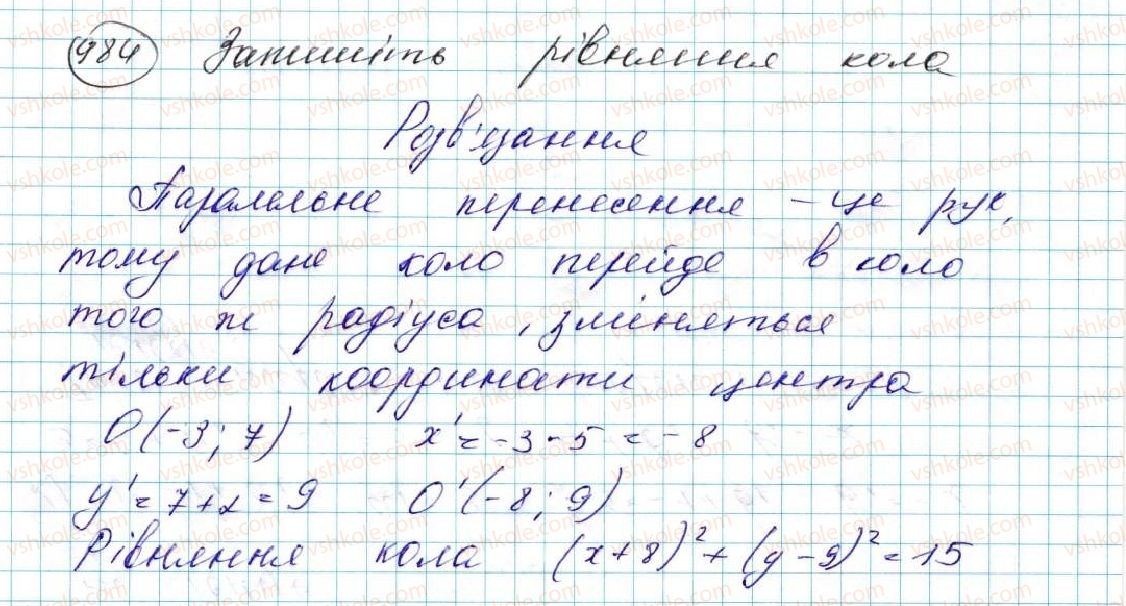 984 Запишіть рівняння кола
Розв'язання
Паралельне перенесення – це рух,
тому дане коло перейде в коло
того ж радіуса, зміняться
тільки координати центра
O(-3; 7) x' = -3 - 5 = -8
y' = 7 + 2 = 9 O'(-8; 9)
Рівняння кола (x+8)² + (y-9)² = 15